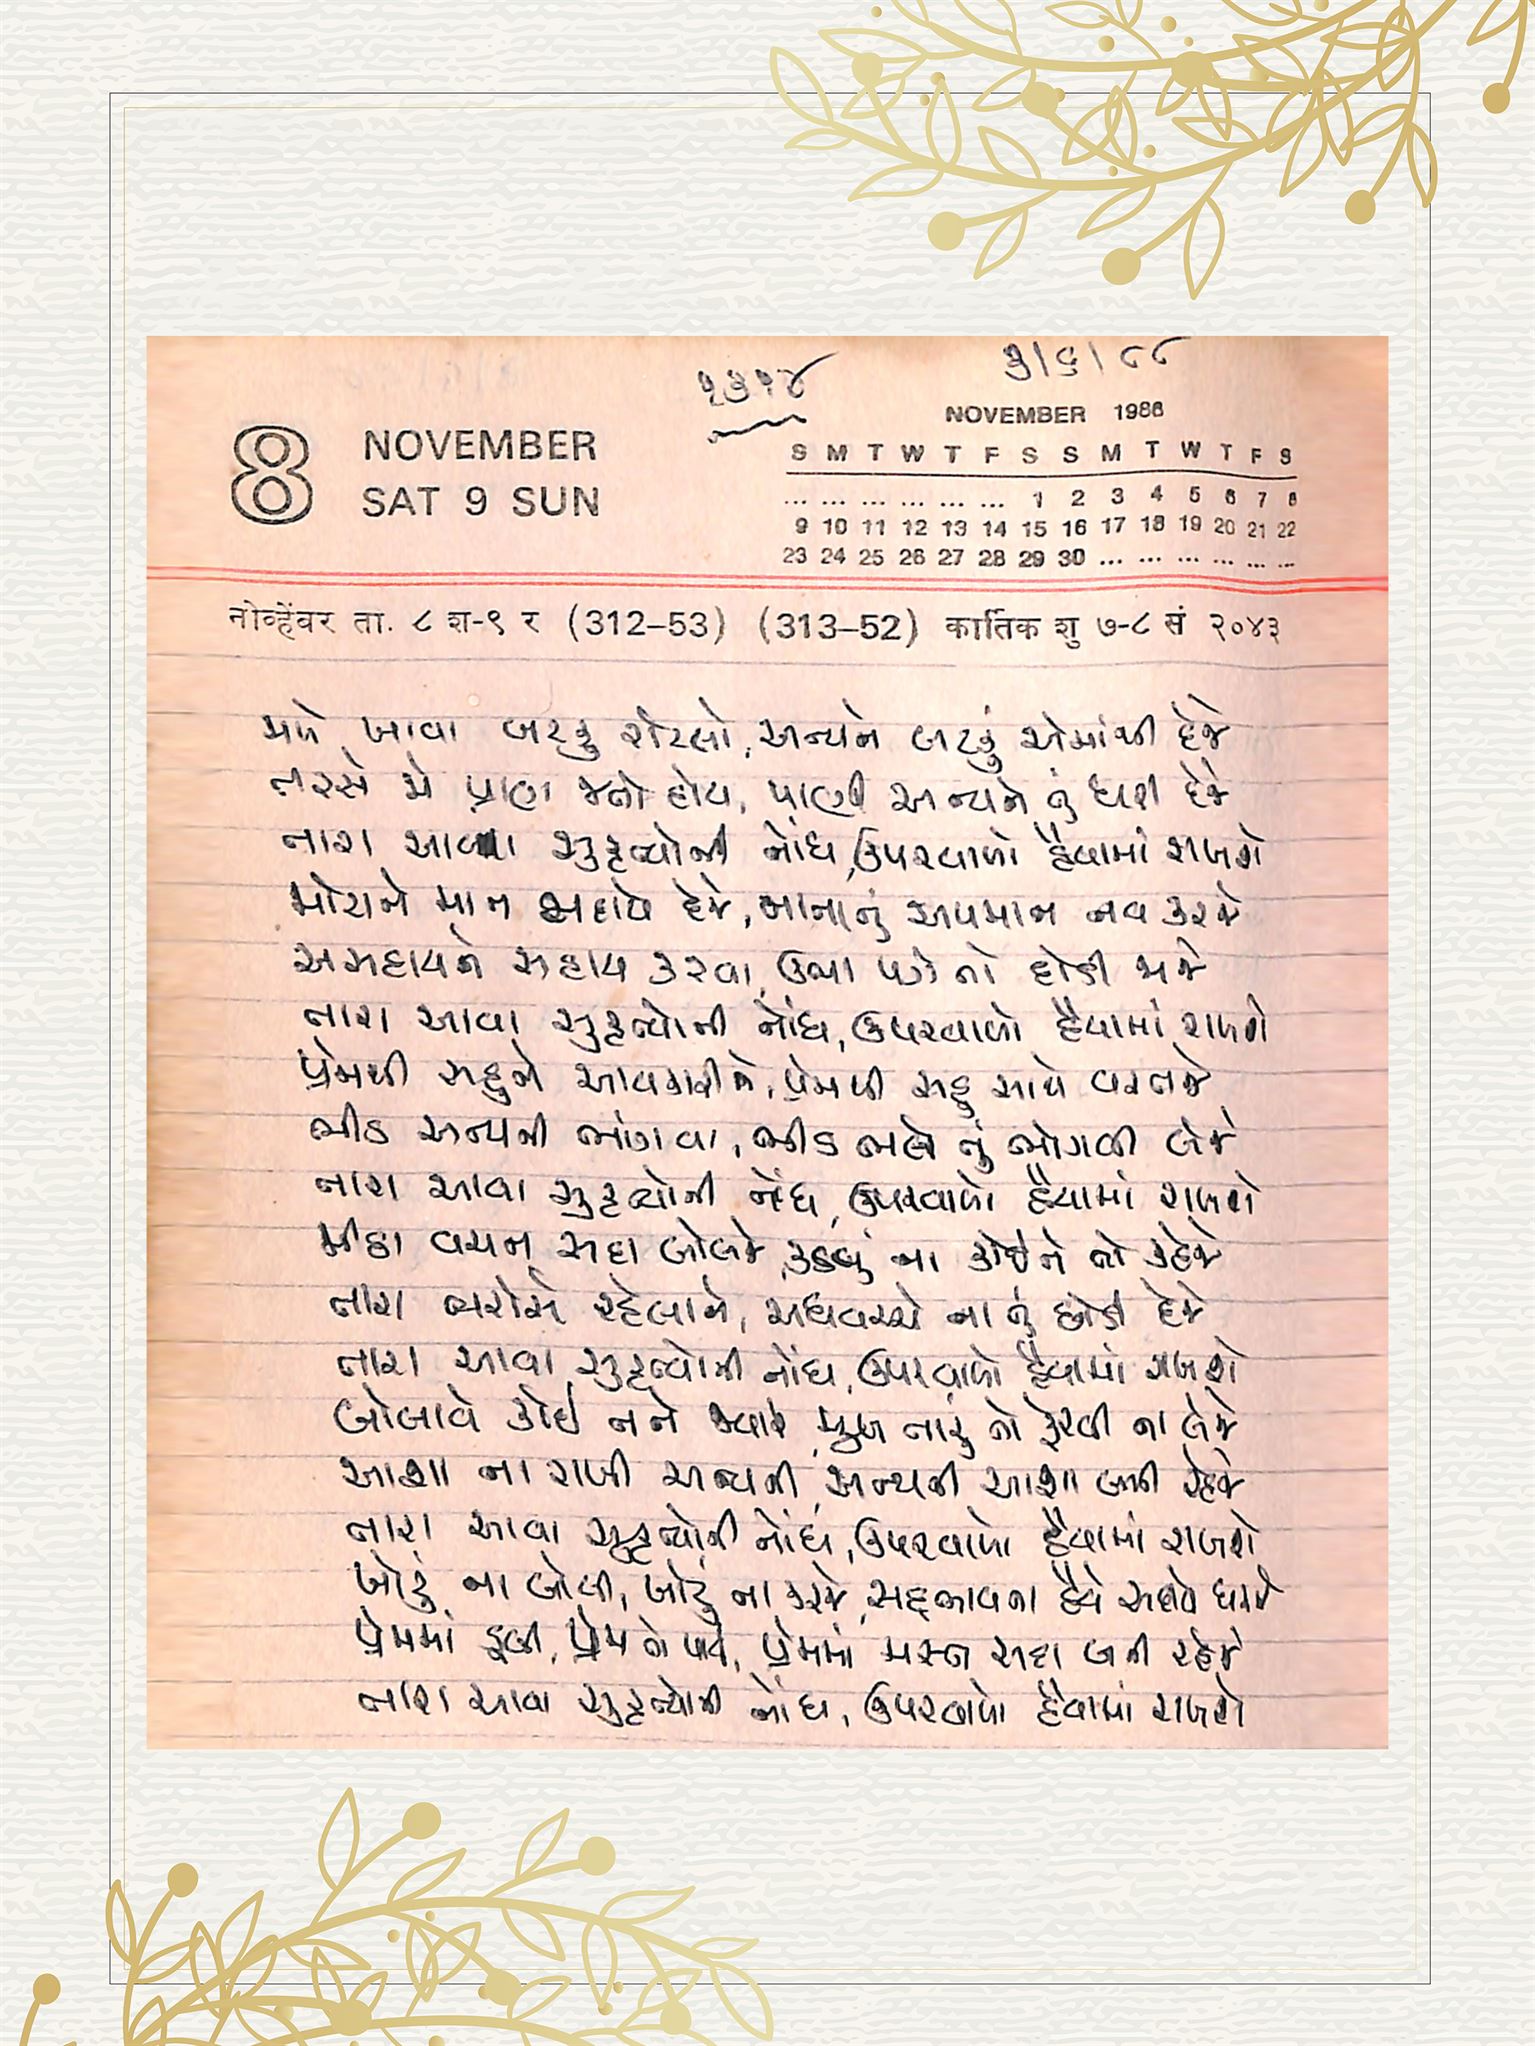 ૧૩૧૪
૩|૬|૮૮
8 NOVEMBER
SAT 9 SUN
NOVEMBER 1986
S M T W T F S S M T W T F S
... ... ... ... ... ... 1 2 3 4 5 6 7 8
9 10 11 12 13 14 15 16 17 18 19 20 21 22
23 24 25 26 27 28 29 30 ... ... ... ... ... ...
नोव्हेंबर ता. ८ श-९ र (312–53) (313–52) कार्तिक शु ७-८ सं २०४३
મળે ખાવા બટકું રોટલો, અન્યને બટકું એમાંથી દેજે
તરસે જો પ્રાણ જતો હોય, પાણી અન્યને તું ધરી દેજે
તારા આવા સુકૃત્યોની નોંધ, ઉપરવાળો હૈયામાં રાખશે
મોટાને માન સદાયે દેજે, નાનાનું અપમાન નવ કરજે
અસહાયને સહાય કરવા, ઉભા પગે તો દોડી જાજે
તારા આવા સુકૃત્યોની નોંધ, ઉપરવાળો હૈયામાં રાખશે
પ્રેમથી સહુને આવકારીજે, પ્રેમથી સહુ સાથે વરતજે
ભીડ અન્યની ભાંગવા, ભીડ ભલે તું ભોગવી લેજે
તારા આવા સુકૃત્યોની નોંધ, ઉપરવાળો હૈયામાં રાખશે
મીઠા વચન સદા બોલજે, કડવું ના કોઈને તો કહેજે
તારા ભરોસે રહેલાને, અધવચ્ચે ના તું છોડી દેજે
તારા આવા સુકૃત્યોની નોંધ, ઉપરવાળો હૈયામાં રાખશે
બોલાવે કોઈ તને જ્યારે, મુખ તારું તો ફેરવી ના લેજે
આશા ના રાખી અન્યની, અન્યની આશા બની રહેજે
તારા આવા સુકૃત્યોની નોંધ, ઉપરવાળો હૈયામાં રાખશે
ખોટું ના બોલી, ખોટું ના કરજે, સદ્દભાવના હૈયે સદાયે ધરજે
પ્રેમમાં ડૂબી, પ્રેમ તો પાઈ, પ્રેમમાં મસ્ત સદા બની રહેજે
તારા આવા સુકૃત્યોની નોંધ, ઉપરવાળો હૈયામાં રાખશે